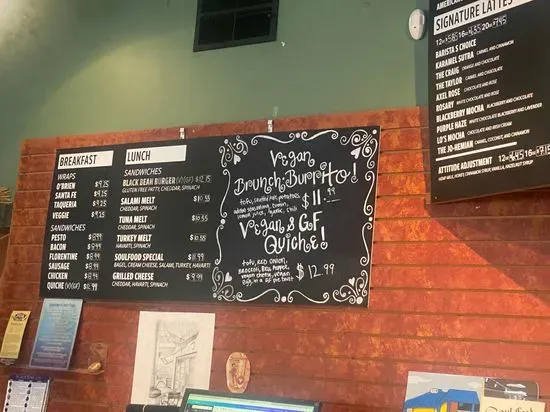 BREAKFAST
WRAPS
O'BRIEN $9.25
SANTA FE $9.25
TAQUERIA $9.25
VEGGIE $9.25
SANDWICHES
PESTO $8.99
BACON $8.99
FLORENTINE $8.99
SAUSAGE $8.99
CHICKEN $8.99
QUICHE (V)(GF) $12.99
LUNCH
SANDWICHES
BLACK BEAN BURGER (V)(GF) $12.75
GLUTEN FREE PATTY, CHEDDAR, SPINACH
SALAMI MELT $10.55
CHEDDAR, SPINACH
TUNA MELT $10.55
CHEDDAR, SPINACH
TURKEY MELT $10.55
HAVARTI, SPINACH
SOULFOOD SPECIAL $11.99
BAGEL, CREAM CHEESE, SALAMI, TURKEY, HAVARTI
GRILLED CHEESE $9.99
CHEDDAR, HAVARTI, SPINACH
Vegan
Brunch Burrito!
$11.99
Vegan & GF
Quiche!
tofu, red onion,
broccoli, Bell pepper,
vegan cheese, vegan
egg, in a GF pie crust
$12.99
AMERICANO
SIGNATURE LATTES
BARISTA'S CHOICE
KARAMEL SUTRA CARAMEL AND CINNAMON
THE CRAIG ORANGE AND CHOCOLATE
THE TAYLOR CARAMEL AND CHOCOLATE
AXEL ROSE CHOCOLATE AND ROSE
ROSARY WHITE CHOCOLATE AND ROSE
BLACKBERRY MOCHA BLACKBERRY AND CHOCOLATE
PURPLE HAZE WHITE CHOCOLATE BLACKBERRY AND LAVENDER
LO'S MOCHA CHOCOLATE AND IRISH CREAM
THE JO-HEMIAN CARAMEL, COCONUT, AND CINNAMON
ATTITUDE ADJUSTMENT
HEMP MILK, HONEY, CINNAMON SYRUP, VANILLA, HAZELNUT SYRUP